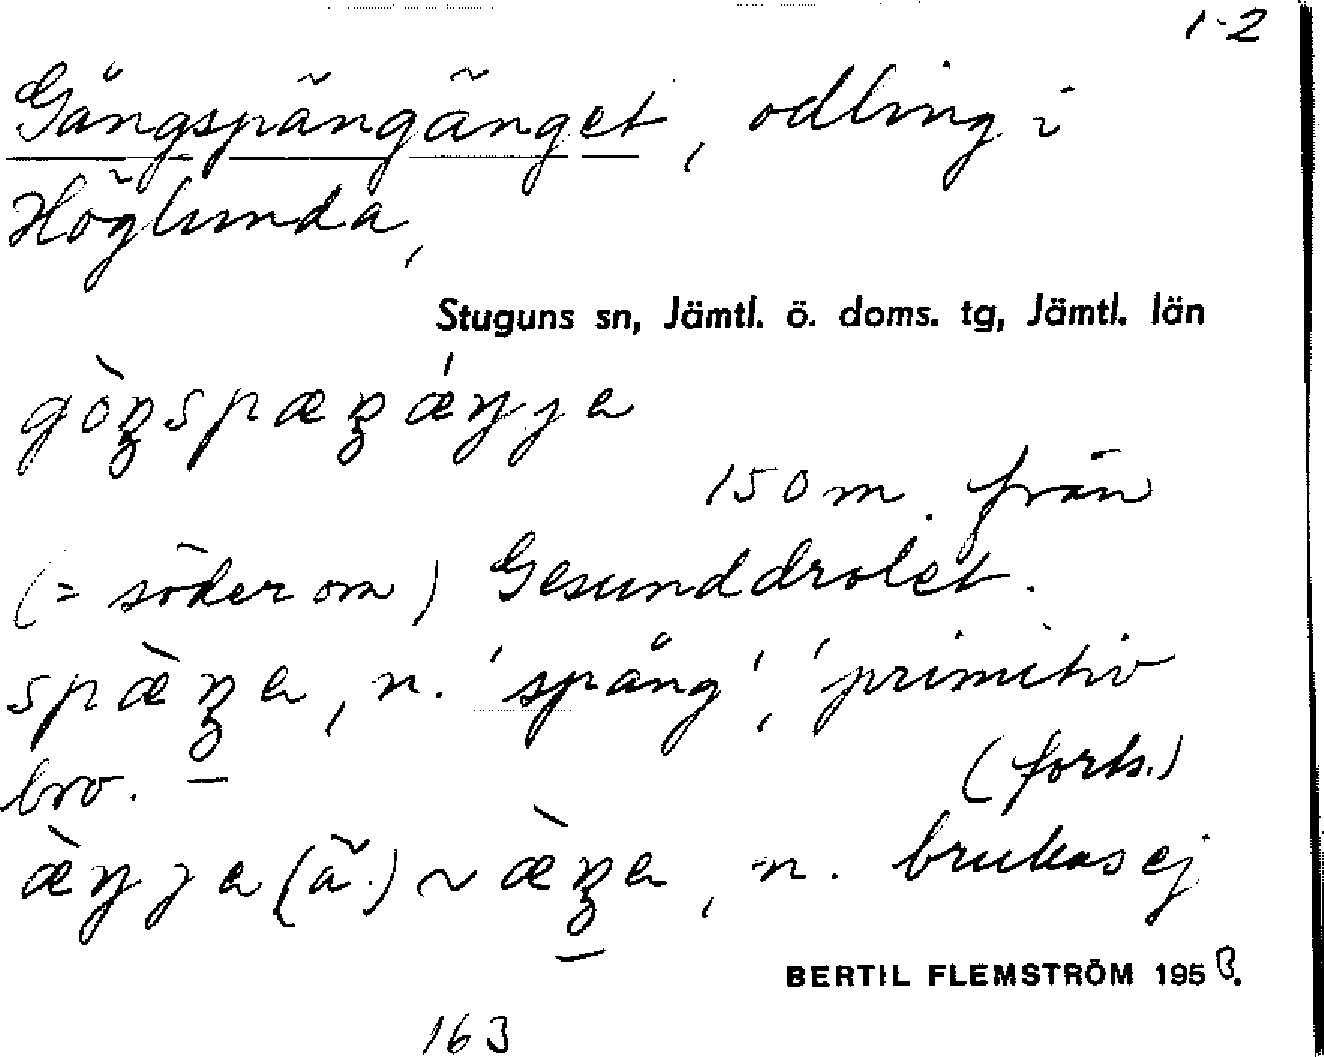 1-2
Gångspängänget, odling i
Höglunda,
Stuguns sn, Jämtl. ö. doms. tg, Jämtl. län
150 m. från
(= söder om) Gesunddrolet.
n. 'spång', 'primitiv
bro. (forts.)
n. brukas ej
BERTIL FLEMSTRÖM 1958.
163